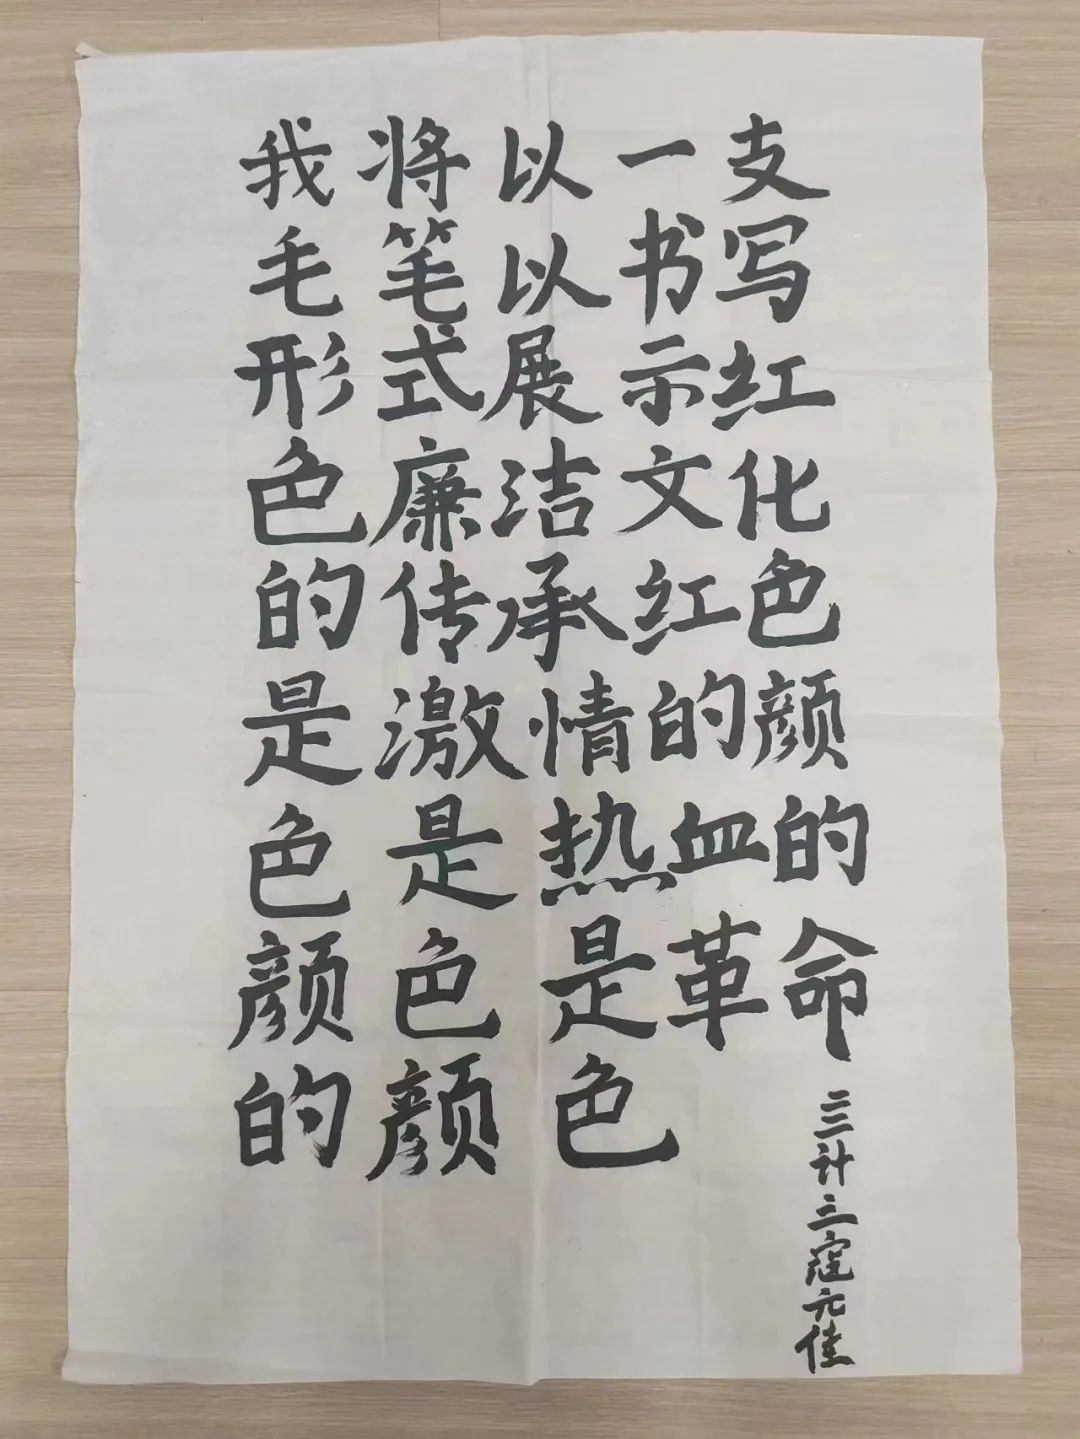 我将以一支
毛笔以书写
形式展示红
色廉洁文化
的传承红色
是激情的颜
色是热血的
颜色是革命
的颜色
三计三寇元佳